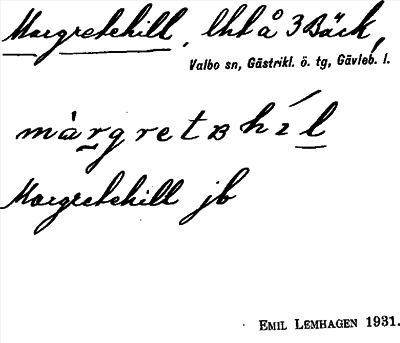 Margretehill, lht å 3 Bäck,
Valbo sn, Gästrikl. ö. tg, Gävleb. l.
màrgretɞhɪ́l
Margretehill jb
EMIL LEMHAGEN 1931.